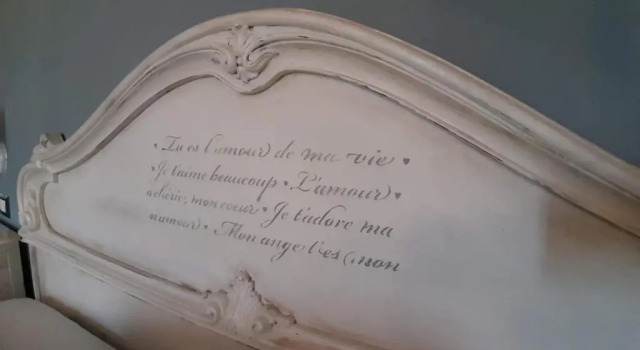 • Tu es l'amour de ma vie ♥
• Je t'aime beaucoup • L'amour ♥
achérie, mon coeur • Je t'adore ma
numour • Mon ange t'es mon